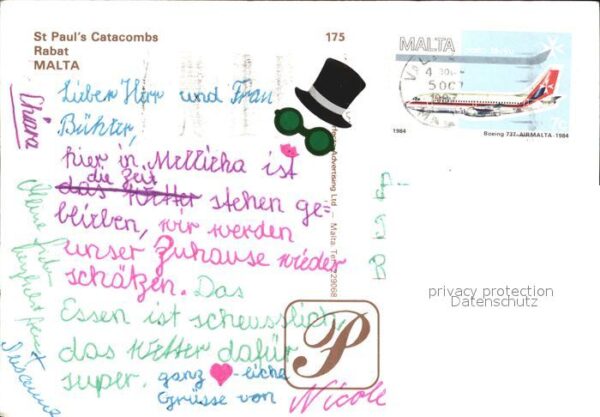 St Paul's Catacombs
Rabat
MALTA
175
MALTA
7c
1984
Boeing 737-AIRMALTA-1984
5 OCT
Chiara
Lieber Herr und Frau
Bühler,
hier in Mellieha ist
die Zeit
das Wetter stehen ge-
blieben, wir werden
unser Zuhause wieder
schätzen. Das
Essen ist scheusslich,
das Wetter dafür
super. ganz ♥-liche
Grüsse von Nicole
Susanne
Advertising Ltd — Malta. Tel.
P
privacy protection
Datenschutz